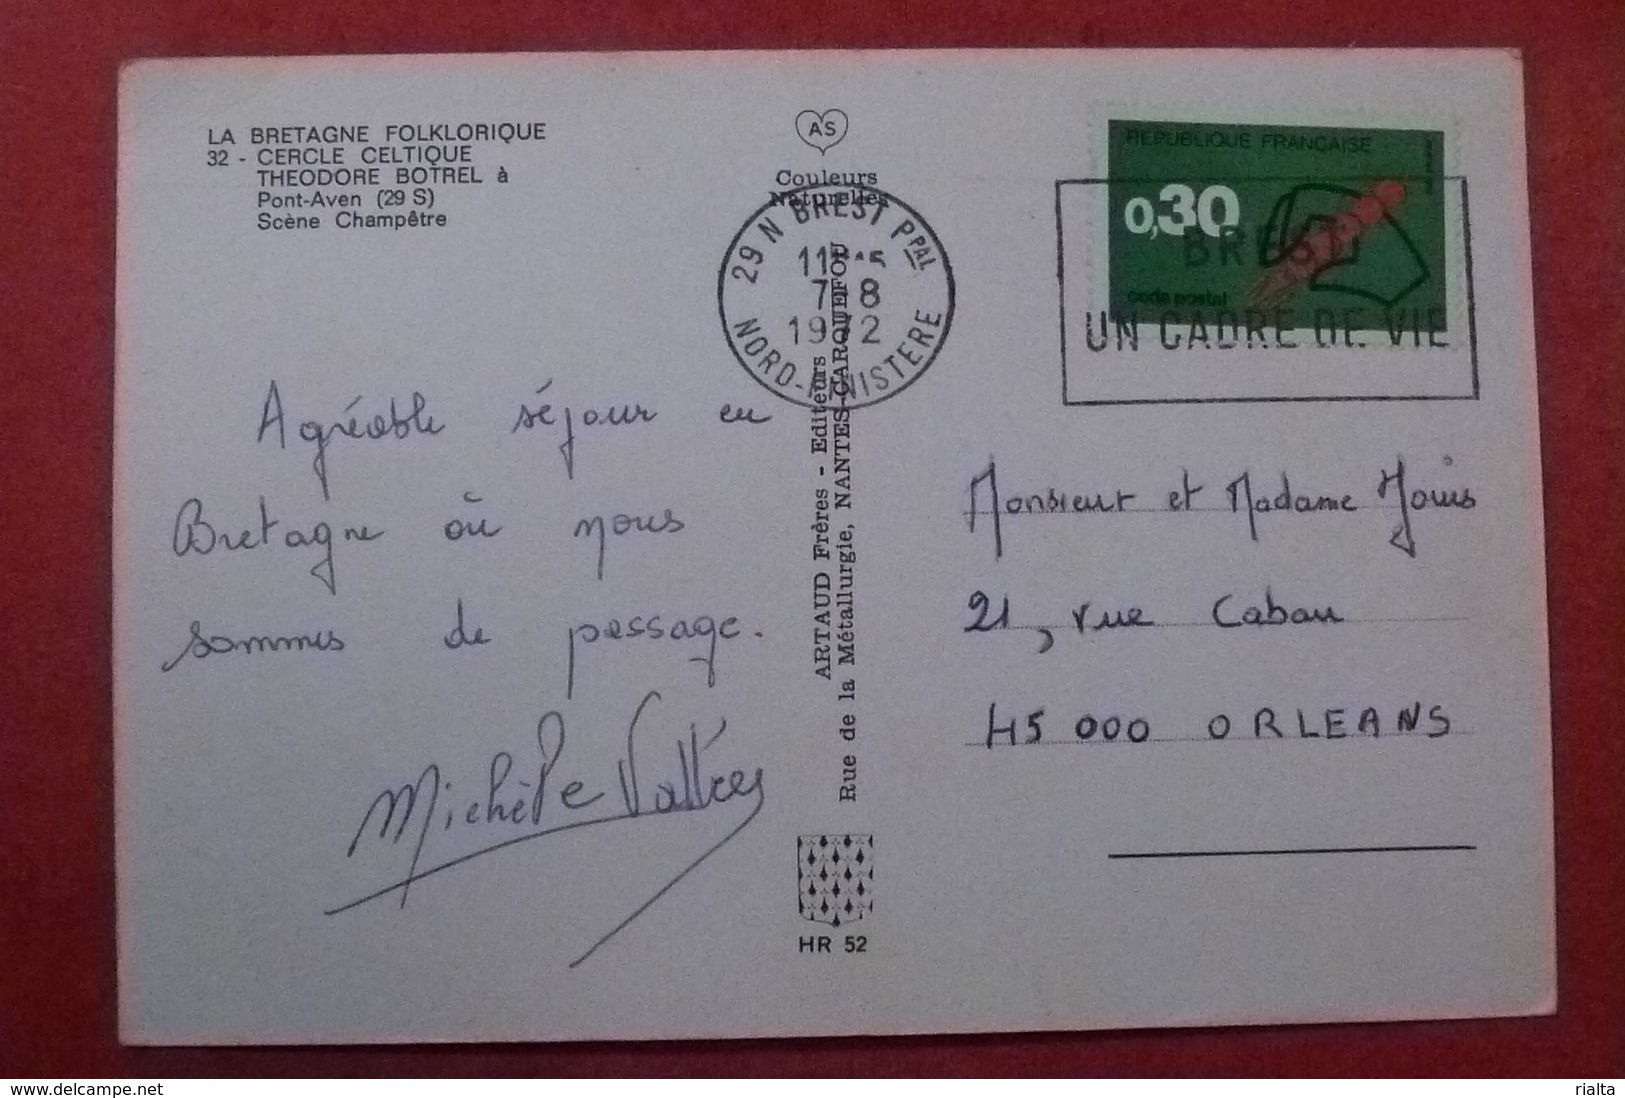 LA BRETAGNE FOLKLORIQUE
32 - CERCLE CELTIQUE
THEODORE BOTREL à
Pont-Aven (29 S)
Scène Champêtre
AS
Couleurs
Naturelles
29 N BREST PPAL
11
7 8
19 2
NORD-FINISTERE
REPUBLIQUE FRANÇAISE
0,30
code postal
BREST
UN CADRE DE VIE
Agréable séjour en
Bretagne où nous
sommes de passage.
Michèle Vallées
ARTAUD Frères - Editeurs
Rue de la Métallurgie, NANTES-CARQUEFOU
Monsieur et Madame
21, rue Caban
45 000 ORLEANS
HR 52
www.delcampe.net
rialta